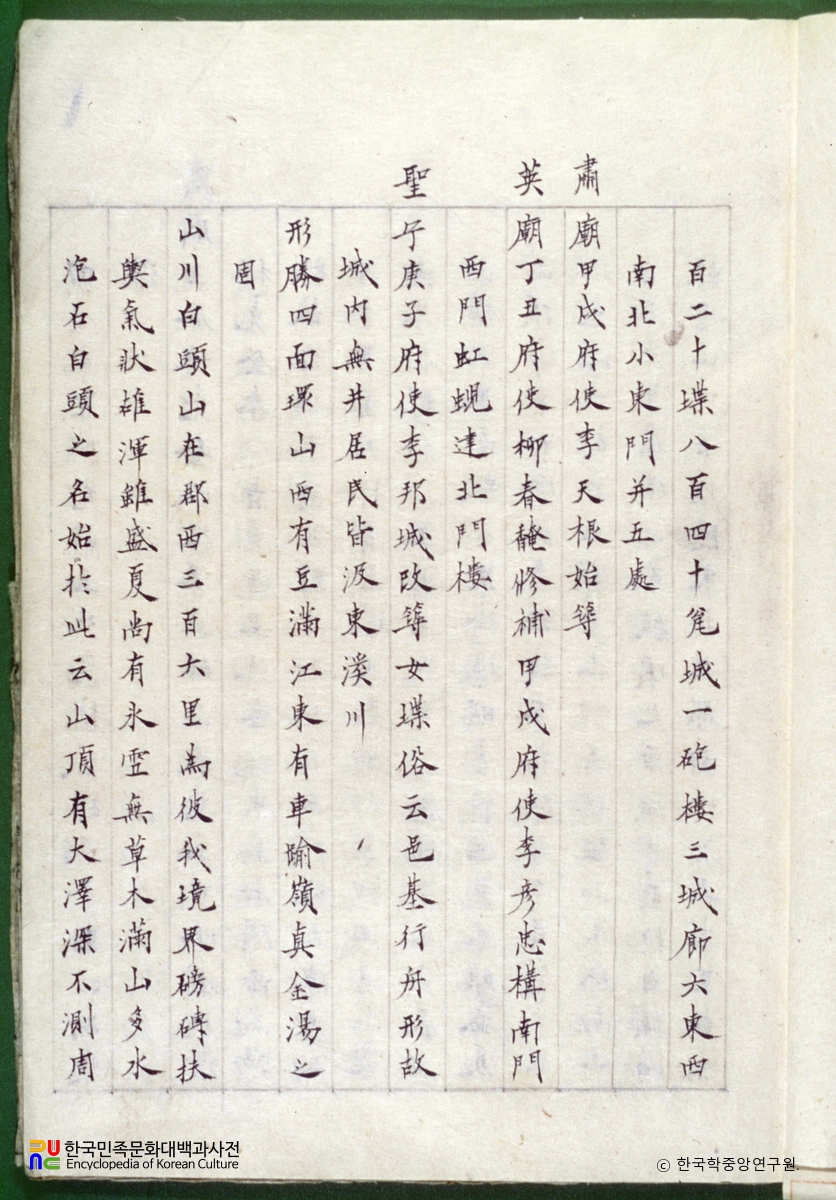 百二十堞八百四十瓮城一砲樓三城廊六東西
南北小東門并五處
肅廟甲戌府使李天根始築
英廟丁丑府使柳春馣修補甲戌府使李彦忠構南門
西門虹蜺達北門樓
聖上庚子府使李邦城改築女堞俗云邑基行舟形故
城內無井居民皆汲東溪川
形勝四面環山西有豆滿江東有車踰嶺眞金湯之
固
山川白頭山在郡西三百六里為彼我境界磅礡扶
輿氣狀雄渾雖盛夏尚有氷雪無草木滿山多水
泡石白頭之名始扵此云山頂有大澤深不測周
한국민족문화대백과사전
Encyclopedia of Korean Culture
© 한국학중앙연구원.